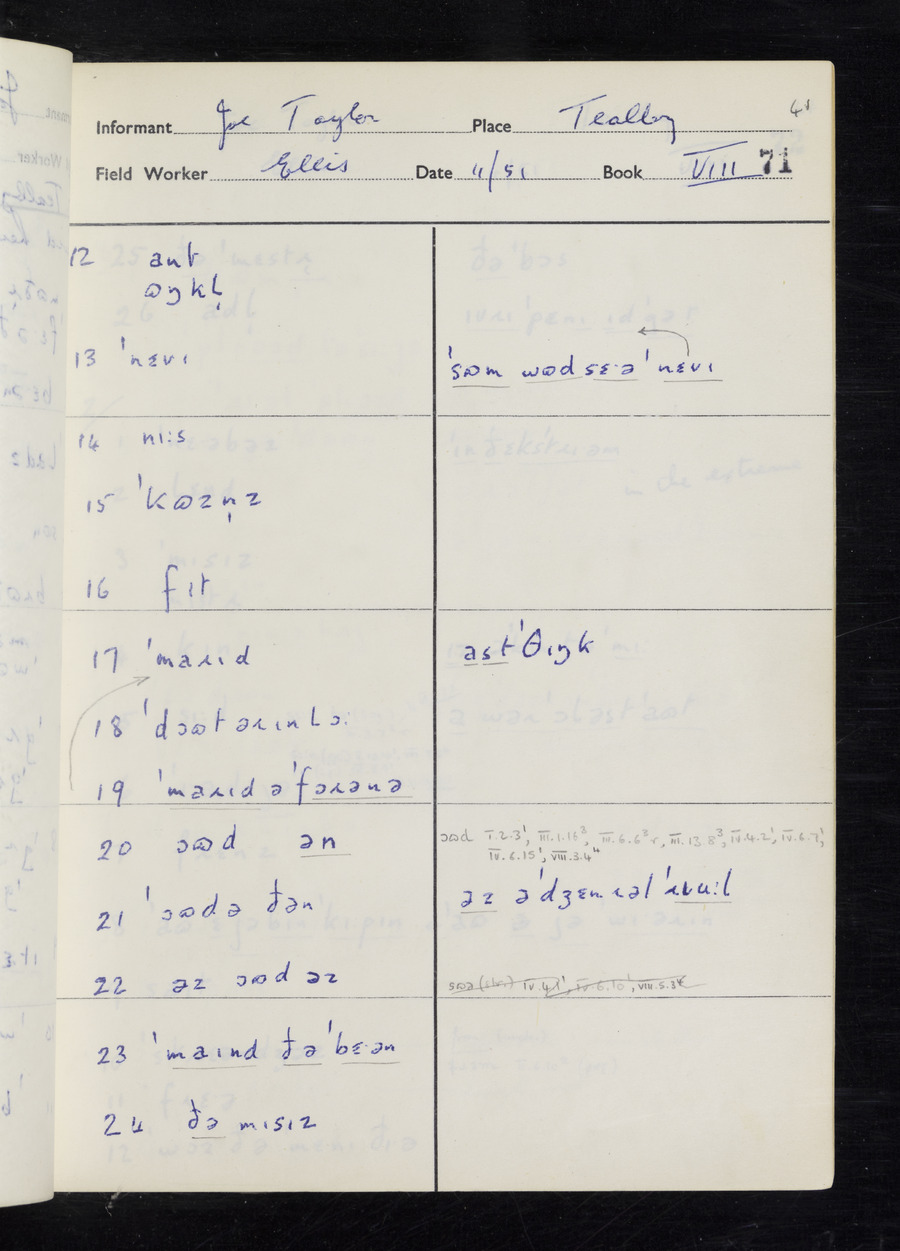 Informant Joe Taylor Place Tealby
Field Worker Ellis Date 11/51 Book VIII 71
12 ant
ɷŋkl̩
13 ˈnɛvɪ
ˈsɷm wɷd sɛ·ə ˈnɛvɪ
14 ni:s
15 ˈkɷzn̩z
16 fɪt
17 ˈmaɹɪd
əstˈθɪŋk
18 ˈdɔɷtəɹɪnlɔ:
19 ˈmaɹɪd əˈfɔɹənə
20 ɔɷd ən
ɔɷd I.2.3¹, III.1.16³, III.6.6³r, III.13.8³, IV.4.2¹, IV.6.7¹,
IV.6.15¹, VIII.3.4⁴
21 ˈɔɷdə ðən
əz əˈdʒɛnɹəl ˈɹu:l
22 əz ɔɷd əz
23 ˈmaɪnd ðə ˈbɛ·ən
24 ðə mɪsɪz